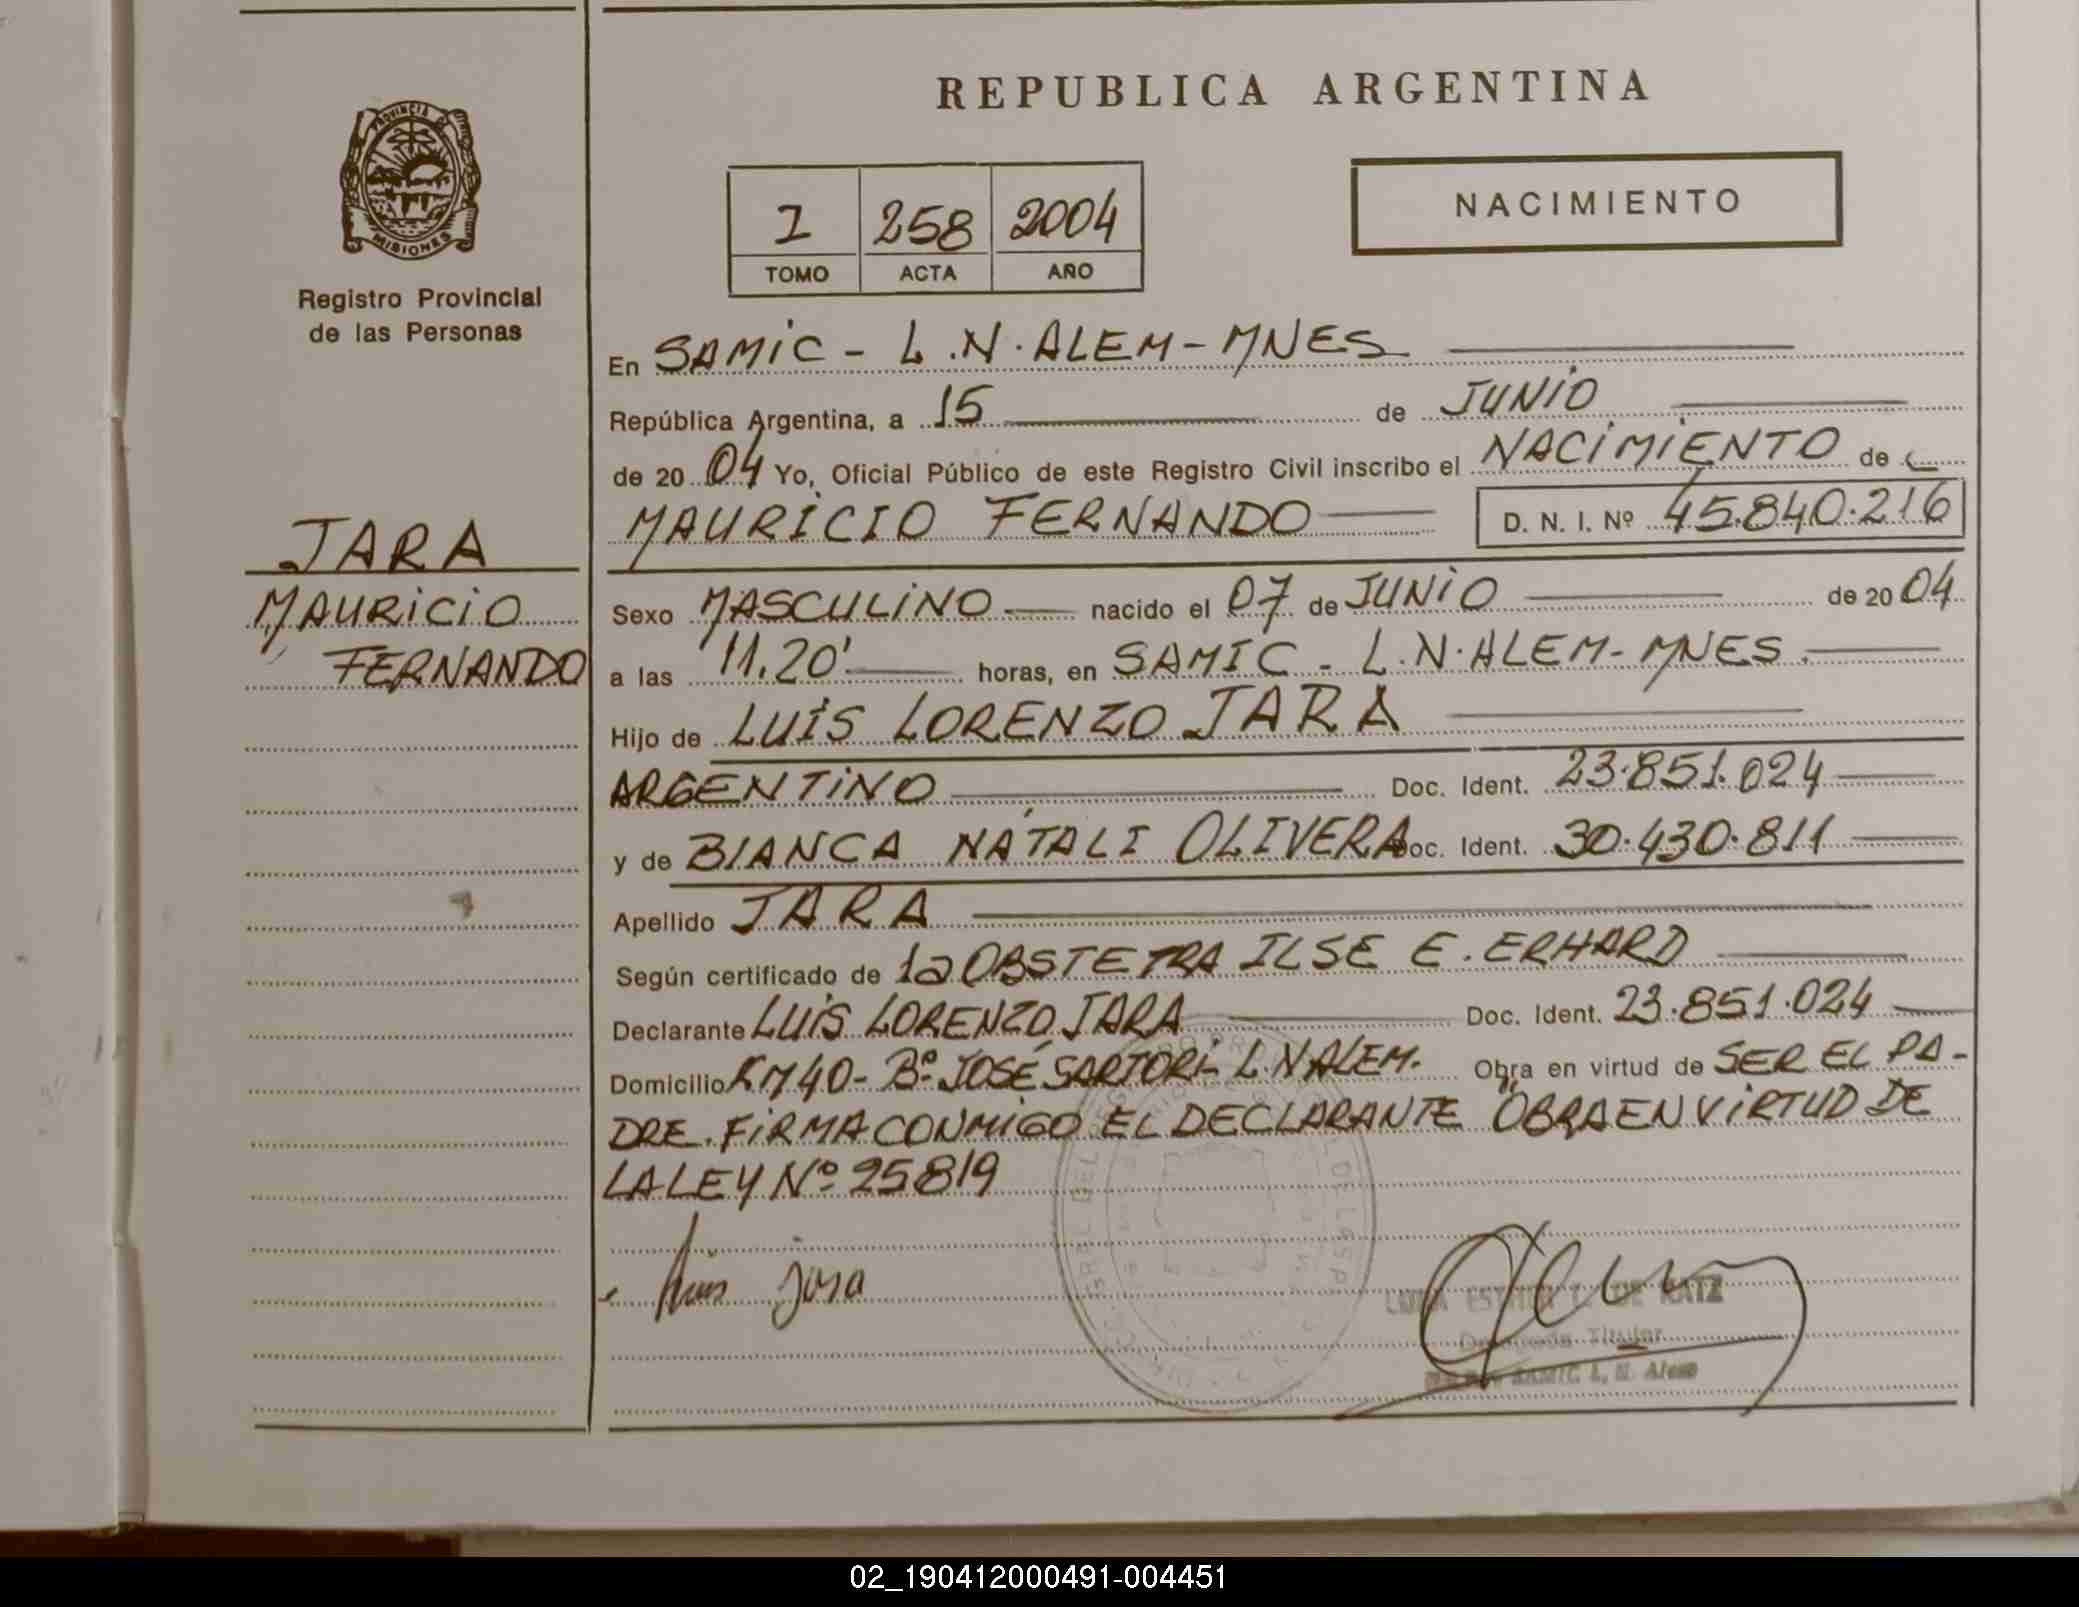 REPUBLICA ARGENTINA
PROVINCIA DE
MISIONES
Registro Provincial
de las Personas
NACIMIENTO
I 258 2004
TOMO ACTA AÑO
En SAMIC - L.N. ALEM - MNES
República Argentina, a 15 de JUNIO
de 2004 Yo, Oficial Público de este Registro Civil inscribo el NACIMIENTO de
MAURICIO FERNANDO D. N. I. Nº 45.840.216
JARA
MAURICIO
FERNANDO
Sexo MASCULINO nacido el 07 de JUNIO de 2004
a las 11.20' horas, en SAMIC - L.N. ALEM - MNES.
Hijo de LUIS LORENZO JARA
ARGENTINO Doc. Ident. 23.851.024
y de BIANCA NATALI OLIVERA Doc. Ident. 30.430.811
Apellido JARA
Según certificado de la OBSTETRA ILSE E. ERHARD
Declarante LUIS LORENZO JARA Doc. Ident. 23.851.024
Domicilio KM 40 - Bº JOSÉ SARTORI - L.N ALEM. Obra en virtud de SER EL PA-
DRE. FIRMA CONMIGO EL DECLARANTE OBRA EN VIRTUD DE
LA LEY Nº 25819
Luis Jara
DE KATZ
Titular
SAMIC L. N. Alem
02_190412000491-004451